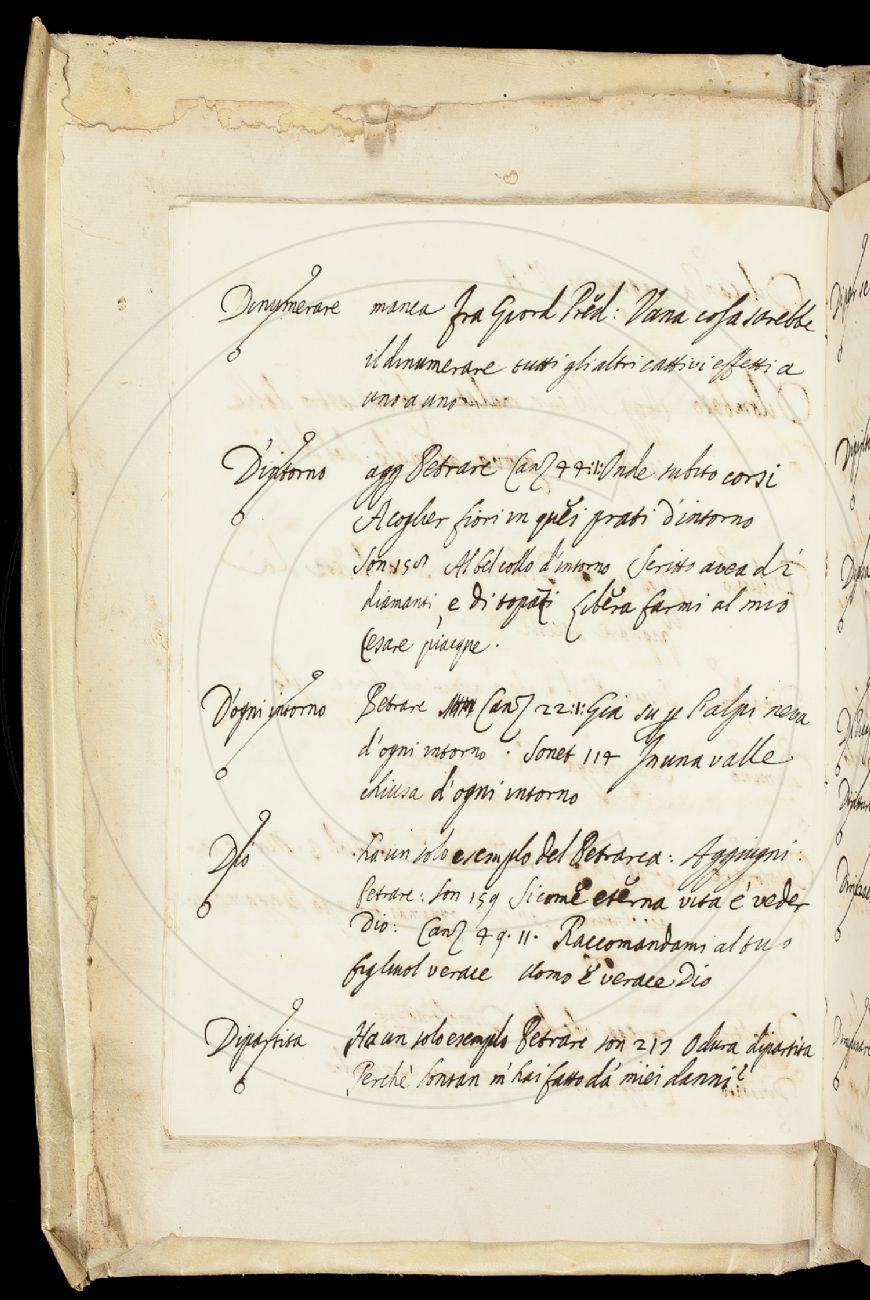 Dinumerare manca fra Giord Pred: Vana cosa sarebbe
il dinumerare tutti gli altri cattivi effetti a
uno a uno
D'intorno agg Petrarc Canz 44:1: Onde subito corsi
A coglier fiori in quei prati d'intorno
Son: 158 Al bel collo d'intorno Scritto avea di
diamanti e di topati Libera farmi al mio
Cesare piacque.
D'ogni intorno Petrarc Canz 22:1: Già su per l'alpi neva
d'ogni intorno. Sonet 114 In una valle
chiusa d'ogni intorno
Dio ha un solo esemplo del Petrarca: Aggiugni:
Petrarc: Son 159 Sicome eterna vita é veder
Dio: Canz 49. 11. Raccomandami al tuo
figliuol verace uomo e verace Dio
Dipartita Ha un solo esemplo Petrarc son 217 O dura dipartita
Perché lontan m'hai fatto da' miei danni?